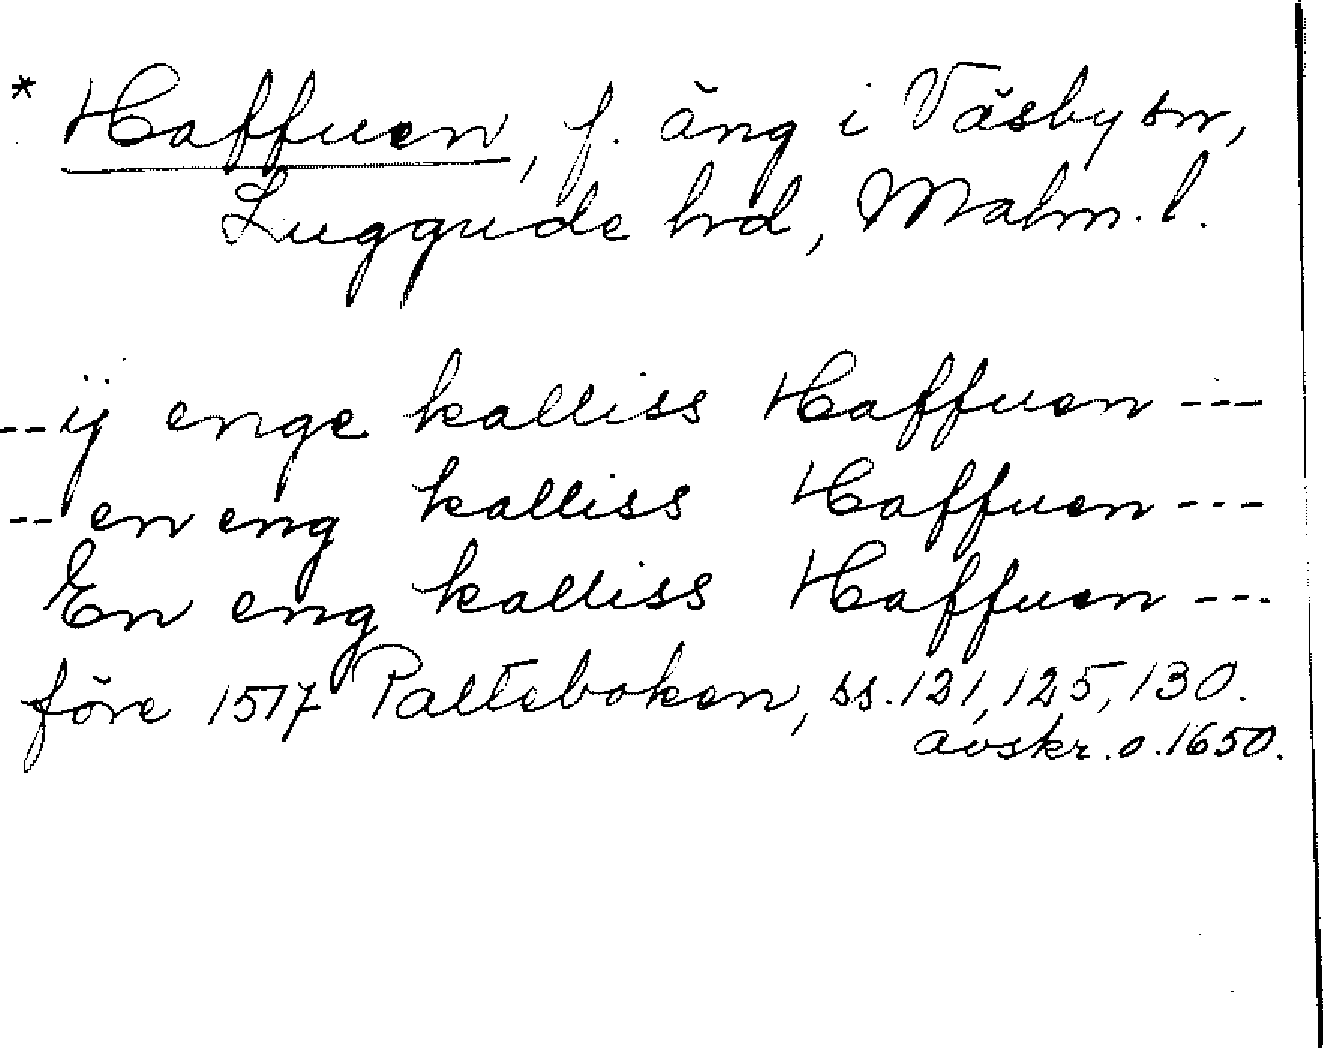 * Haffuen, f. äng i Väsby sn,
Luggude hd, Malm. l.
--ij enge kalliss Haffuen ---
-- en eng kalliss Haffuen ---
En eng kalliss Haffuen ---
före 1517 Palteboken, ss. 121, 125, 130.
avskr. o. 1650.